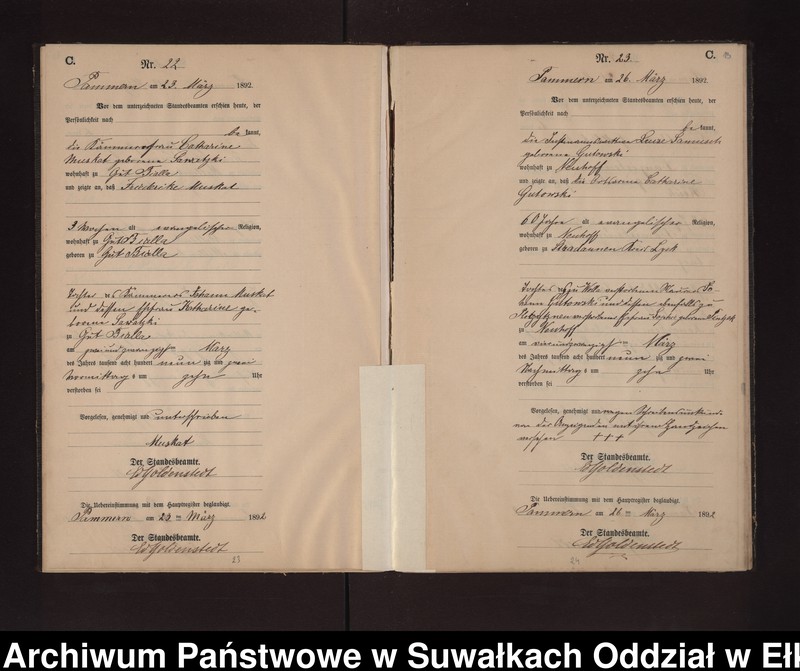 C.
Nr. 22
Pammern am 23. März 1892.
Vor dem unterzeichneten Standesbeamten erschien heute, der
Persönlichkeit nach
be kannt,
die Kämmererfrau Catharine
Muskat geborene Sawatzki
wohnhaft zu Gut Bialla
und zeigte an, daß Frederike Muskat
3 Wochen alt evangelischer Religion,
wohnhaft zu Gut Bialla
geboren zu Gut Bialla
Tochter des Kämmerers Johann Muskat
und dessen Ehefrau Katharine ge-
borene Sawatzki
zu Gut Bialla
am zwei und zwanzigsten März
des Jahres tausend acht hundert neunzig und zwei
Vormittags um zehn Uhr
verstorben sei
Vorgelesen, genehmigt und unterschrieben
Muskat
Der Standesbeamte.
Goldenstedt
Die Uebereinstimmung mit dem Hauptregister beglaubigt.
Pammern am 23 ten März 1892
Der Standesbeamte.
Goldenstedt
23
C.
Nr. 23.
Pammern am 26. März 1892
Vor dem unterzeichneten Standesbeamten erschien heute, der
Persönlichkeit nach
be kannt,
die Instmannswittwe
geborene Gutowski
wohnhaft zu Neuhoff
und zeigte an, daß die Johanna Catharine
Gutowski
60 Jahre alt evangelischer Religion,
wohnhaft zu Neuhoff
geboren zu Stradaunen Kreis Lyck
Tochter des zu verstorbenen Jo-
hann Gutowski und dessen ebenfalls zu
verstorbenen Ehefrau Sophie geborene
zu Neuhoff
am vierundzwanzigsten März
des Jahres tausend acht hundert neunzig und zwei
Nachmittags um zehn Uhr
verstorben sei
Vorgelesen, genehmigt und wegen Schreibensunkunde
von der Anzeigenden mit ihrem Handzeichen
versehen +++
Der Standesbeamte.
Goldenstedt
Die Uebereinstimmung mit dem Hauptregister beglaubigt.
Pammern am 26 ten März 1892
Der Standesbeamte.
Goldenstedt
24
Archiwum Państwowe w Suwałkach Oddział w Eł